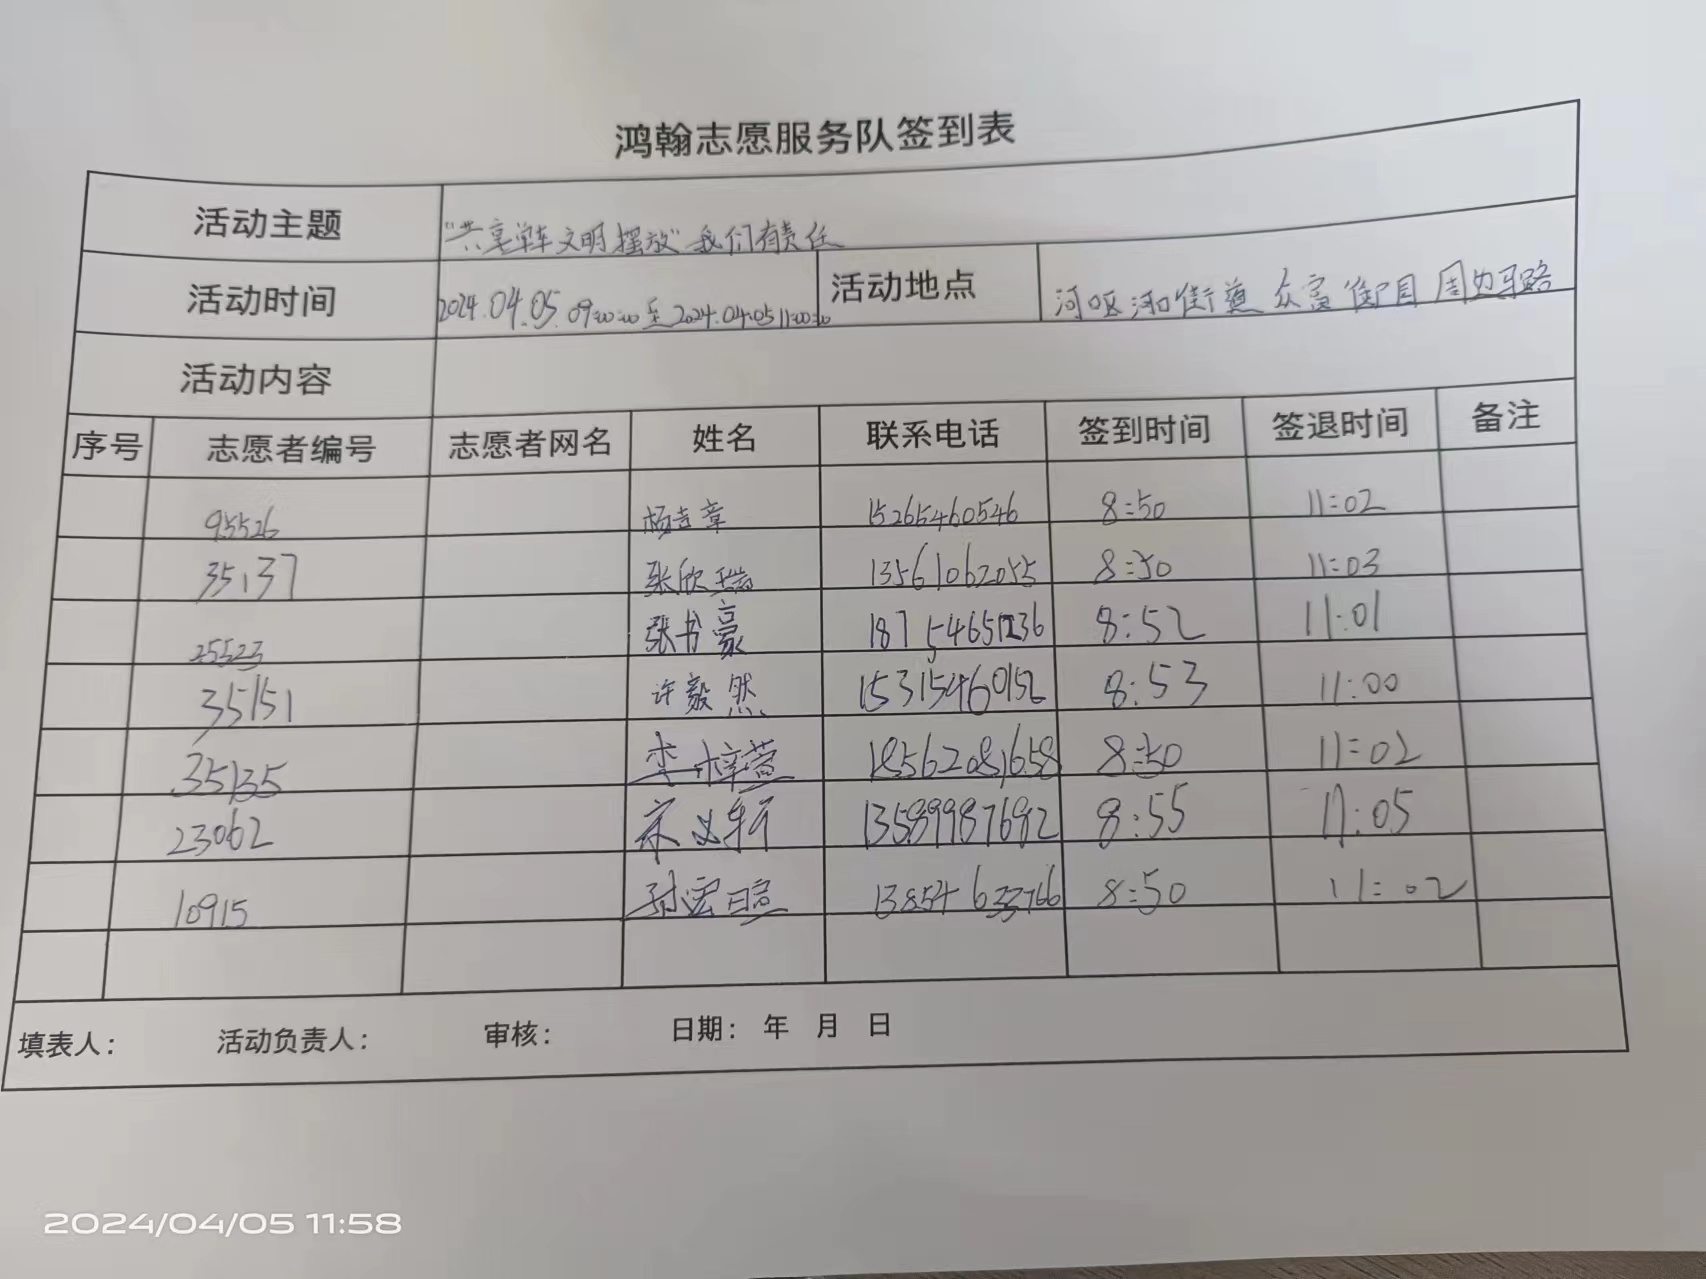 鸿翰志愿服务队签到表
活动主题 "共享单车文明摆放"我们有责任
活动时间 2024.04.05.09:00:00至2024.04.05 11:00:00 活动地点 河口区河口街道 众富 周边马路
活动内容
序号 志愿者编号 志愿者网名 姓名 联系电话 签到时间 签退时间 备注
95526 杨吉章 15265460546 8:50 11:02
35137 张欣瑞 13561062055 8:50 11:03
25523 张书豪 18715465 8:52 11:01
35151 许毅然 15315460152 8:53 11:00
35135 李梓萱 18562081658 8:50 11:02
23062 宋义轩 13589987692 8:55 11:05
10915 孙宏暄 13854633766 8:50 11:02
填表人： 活动负责人： 审核： 日期： 年 月 日
2024/04/05 11:58